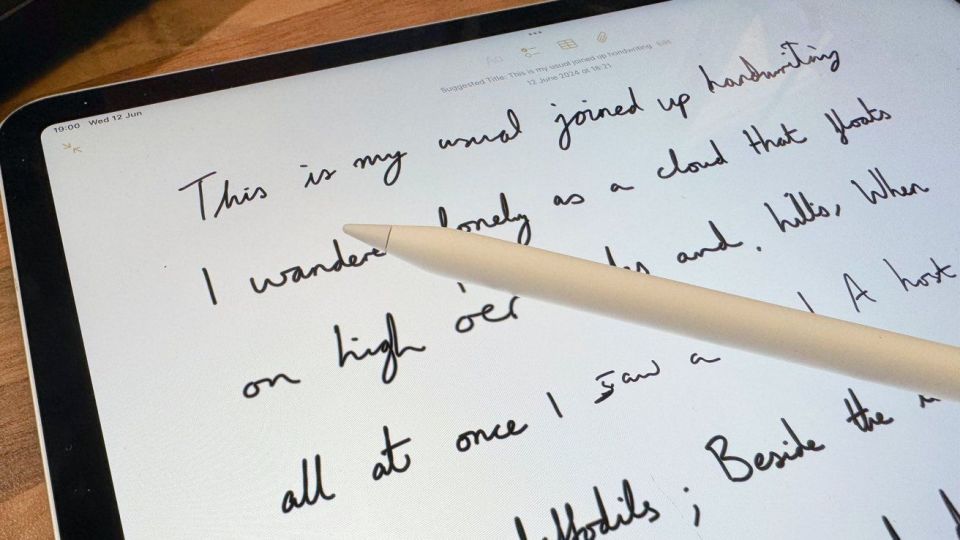 19:00 Wed 12 Jun
Suggested Title: This is my usual joined up handwriting Edit
12 June 2024 at 18:21
This is my usual joined up handwriting
I lonely as a cloud that floats
on high o'er and. hills, When
all at once I saw a A host
; Beside the